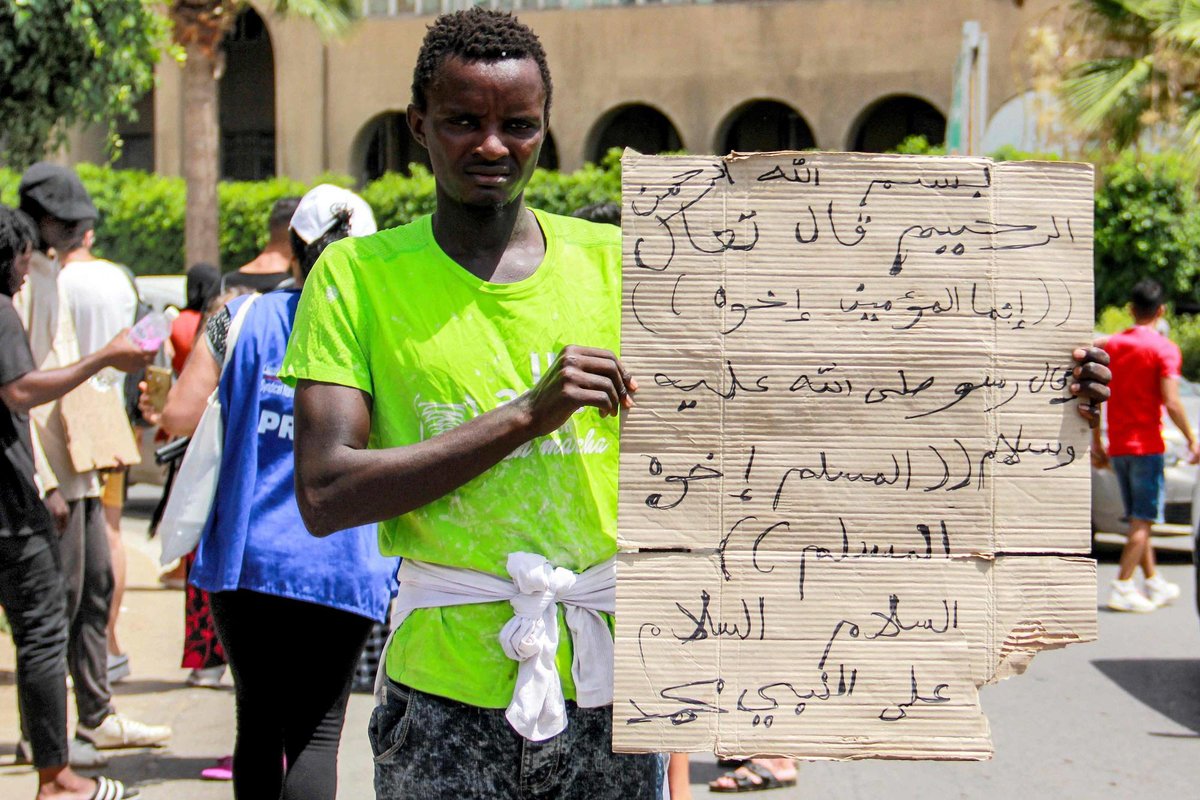 بسم الله الرحمن
الرحيم قال تعال
((إنما المؤمنين إخوة))
قال رسو صلى الله عليه
وسلام ((المسلم إخوة
المسلم))
السلام السلام
على النبي محمد
PR